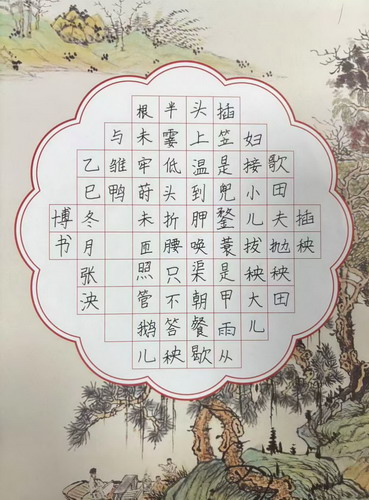 插秧
歌田夫抛秧田
妇接小儿拔秧大儿
插笠是兜鍪蓑是甲雨从
头上温到胛唤渠朝餐歇
半霎低头折腰只不答秧
根未牢莳未匝照管鹅儿
与雏鸭
乙巳冬月张泱
博书